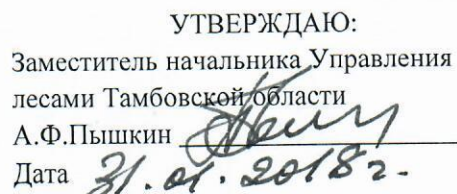 УТВЕРЖДАЮ:
Заместитель начальника Управления
лесами Тамбовской области
А.Ф.Пышкин
Дата 31.01.2018г.